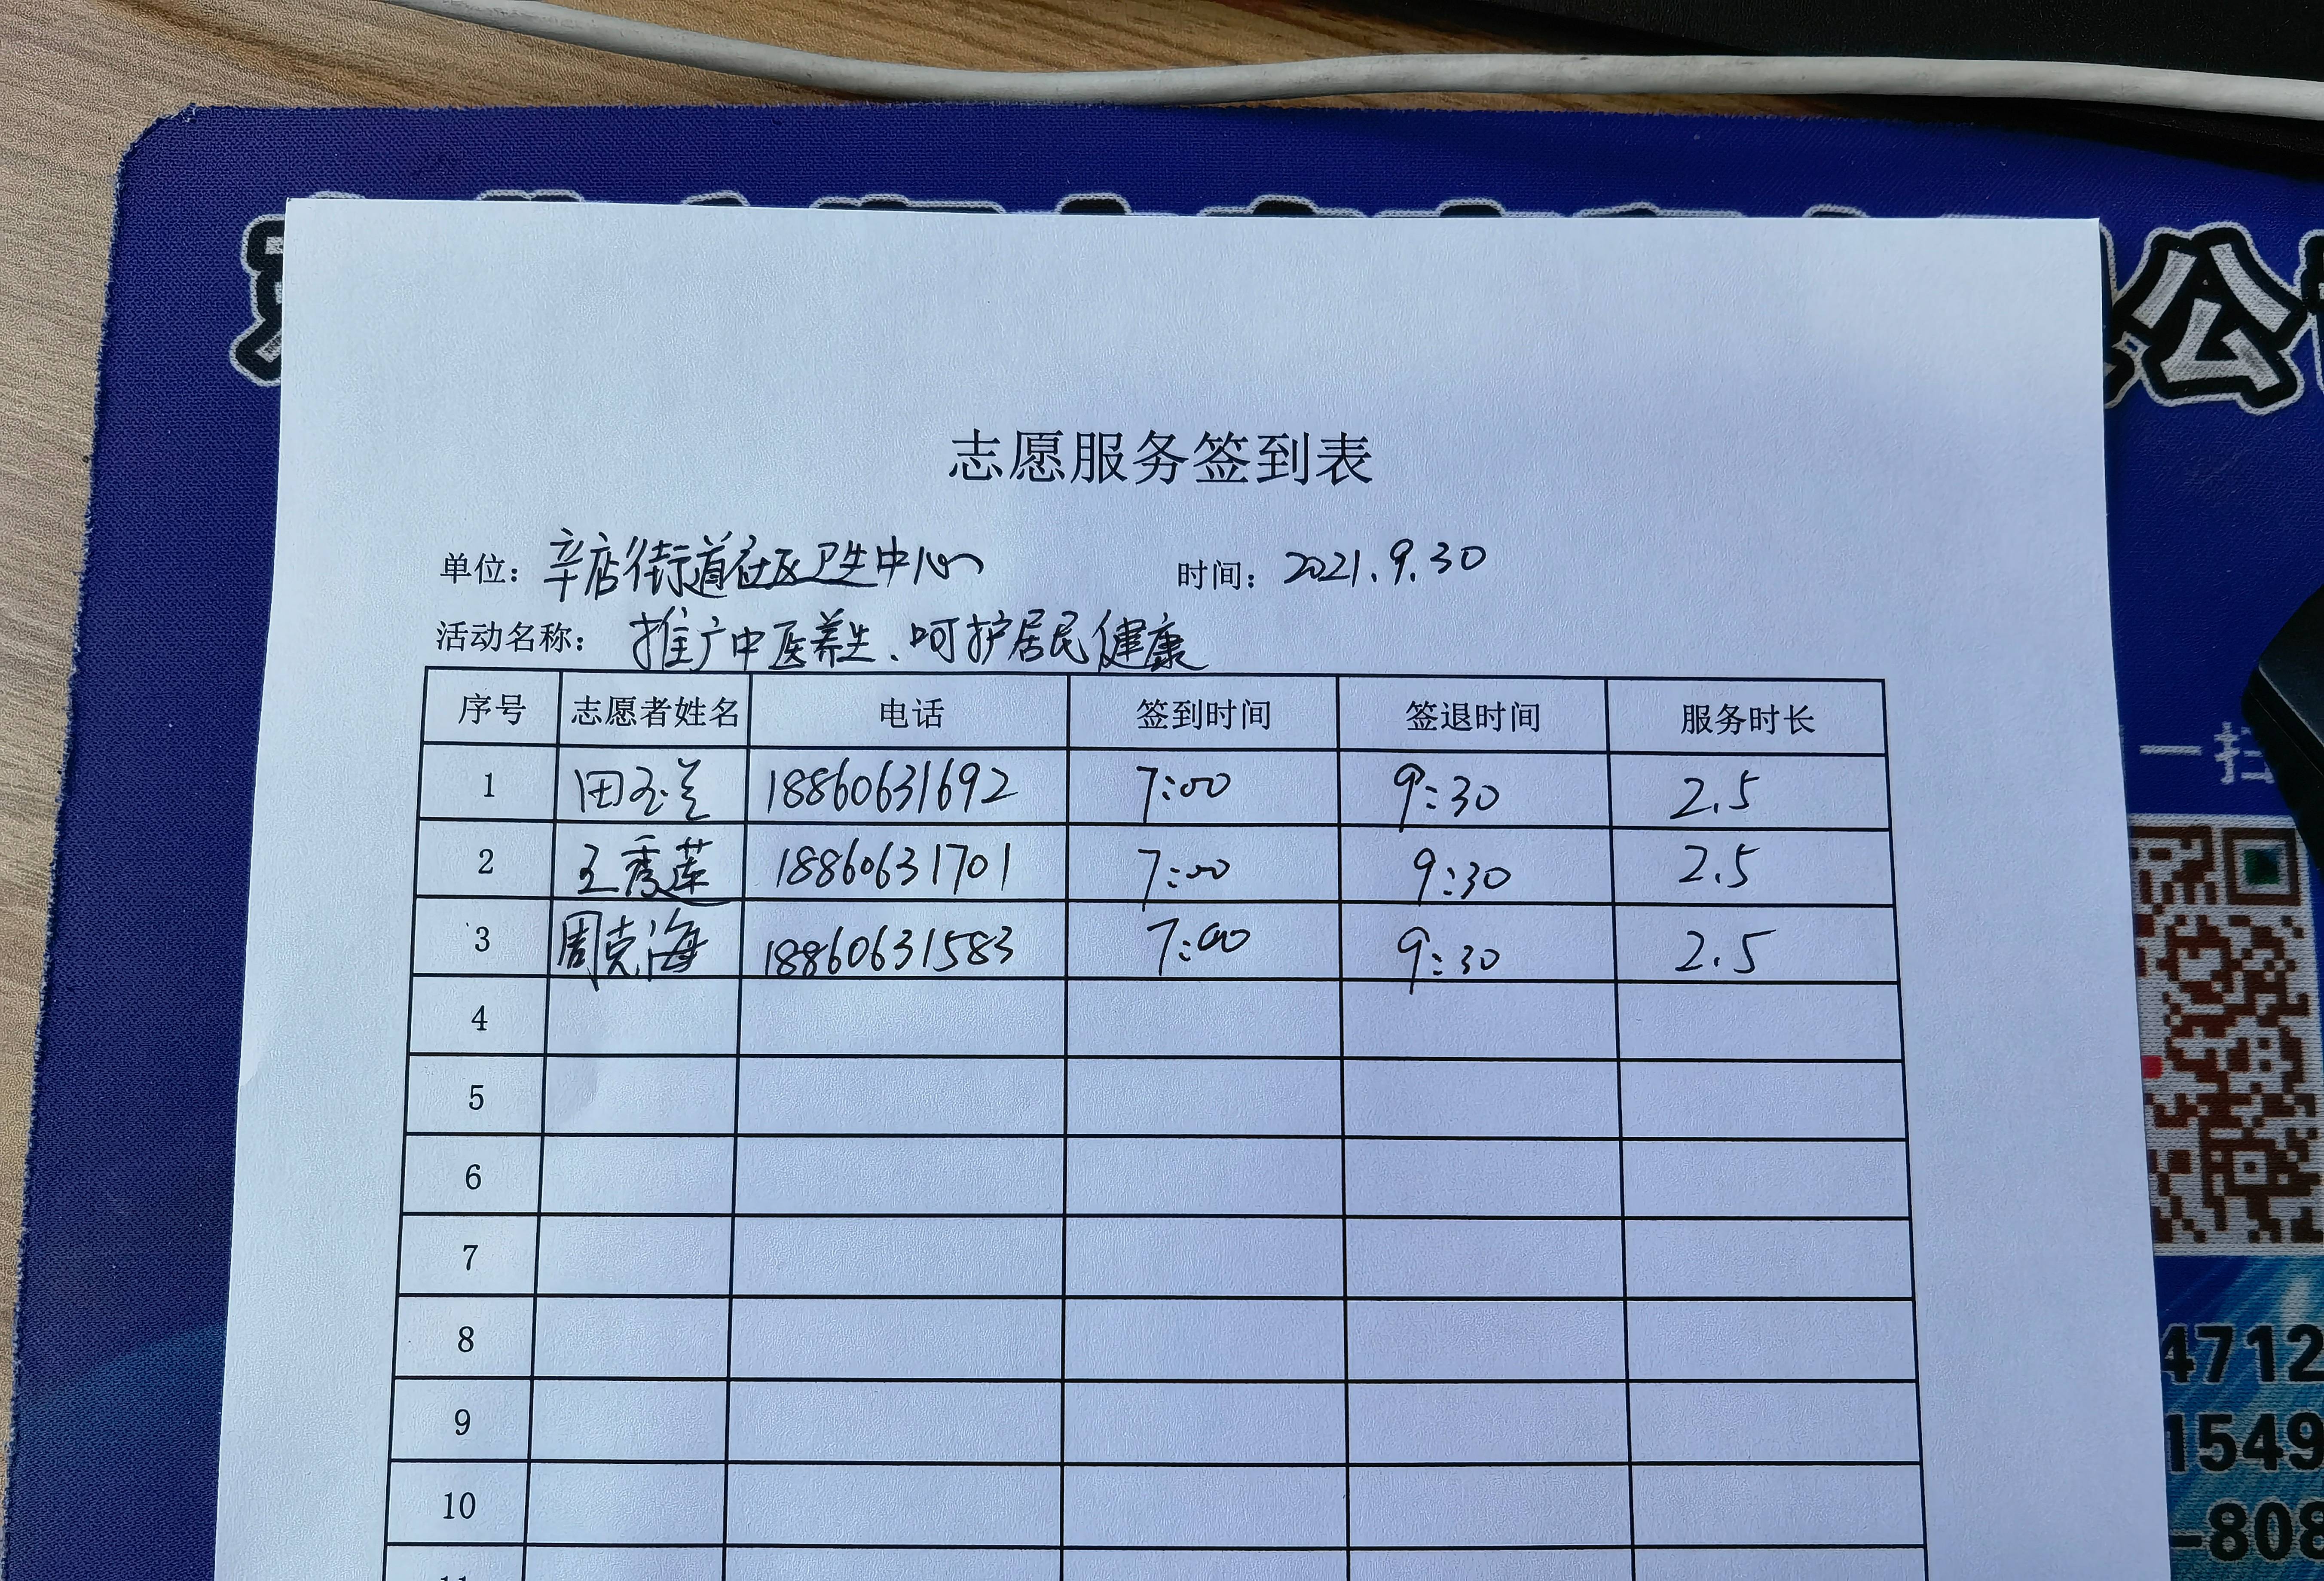 公
志愿服务签到表
单位：辛店街道社区卫生中心 时间：2021.9.30
活动名称：推广中医养生、呵护居民健康
序号 志愿者姓名 电话 签到时间 签退时间 服务时长
1 田玉兰 18860631692 7:00 9:30 2.5
2 王秀莲 18860631701 7:00 9:30 2.5
3 周克海 18860631583 7:00 9:30 2.5
4
5
6
7
8
9
10
一扫
4712
1549
-808